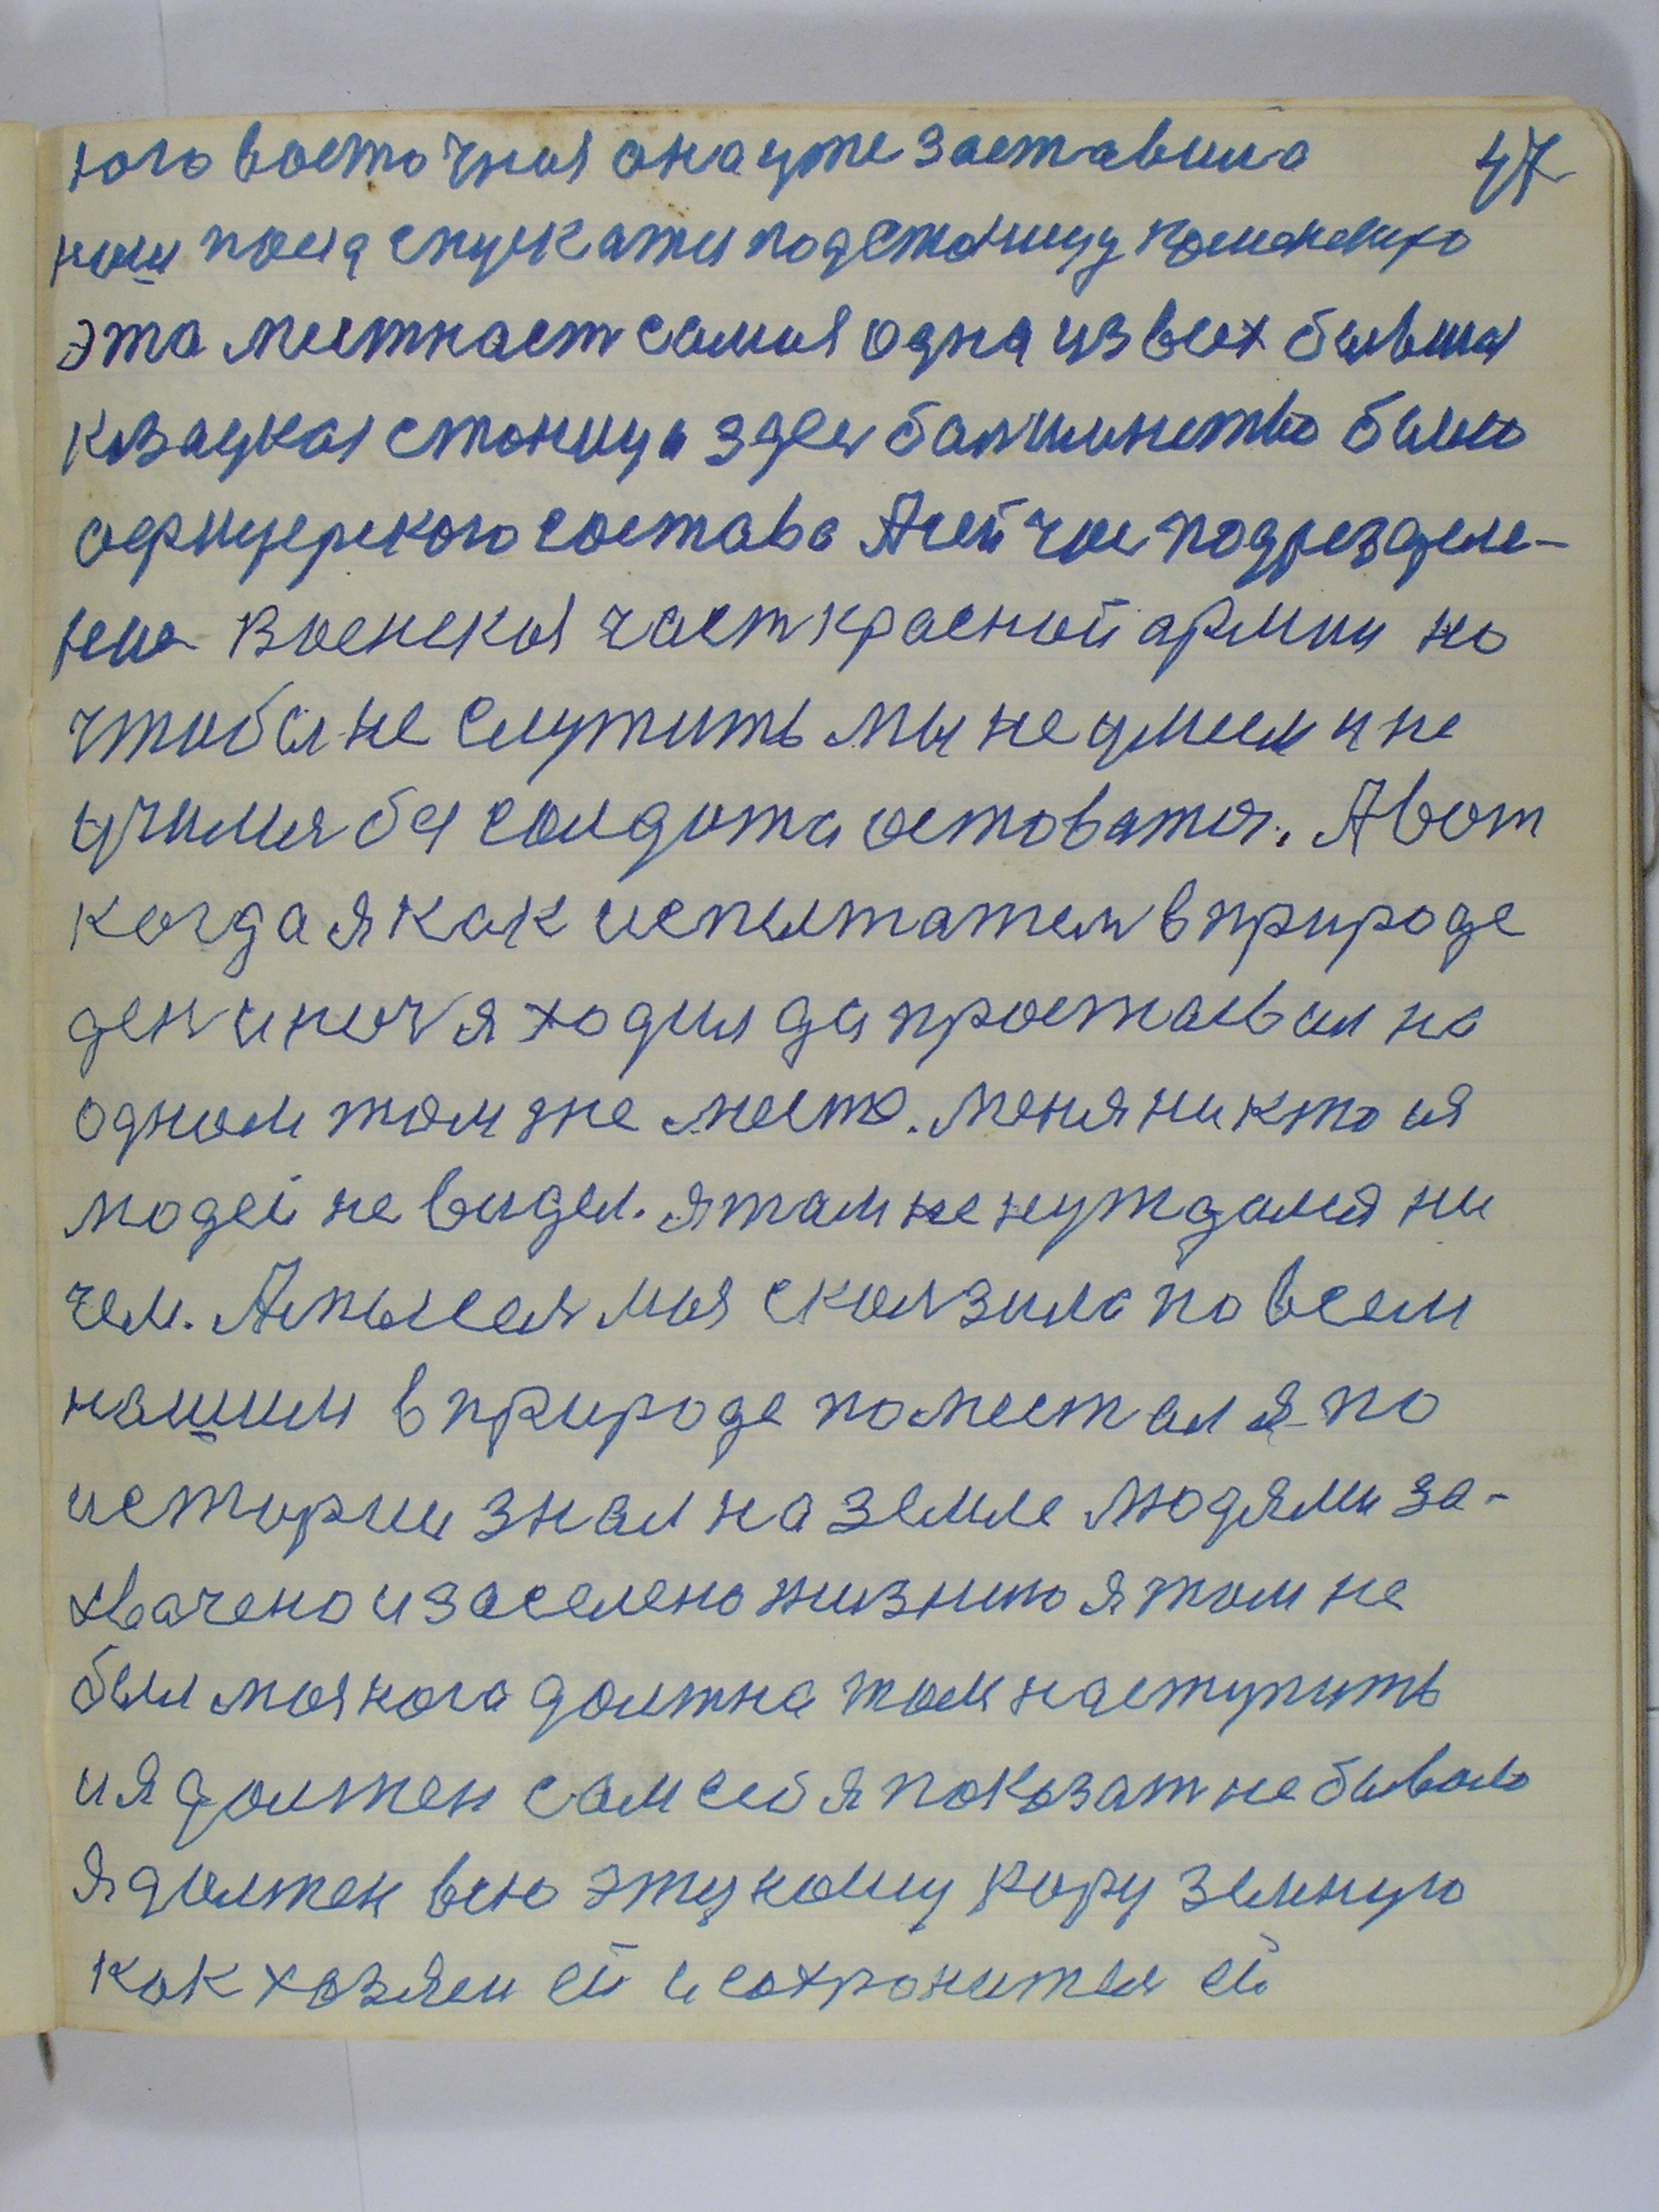 юго восточная она уже заставила 47
наш поезд спускатся под станицу
эта местност самая одна из всех бывша
казацкая станица здес балшинство было
офицерского состава А сейчас подрезделе-
ния военская част красной армии но
чтобы не служить мы не умеем и не
учимся бы солдата оставатся. А вот
когда я как испытатель в природе
ден и ноч я ходил да простаевал на
одном том же место. меня никто ия
людей не видел. я там не нуждался ни
чем. А мысля моя сколзила по всем
нашим в природе по местам я по
истории знал на земле людями за-
хвачено и заселено жизнию я там не
был моя нога должна там наступить
и я должен сам себя показат небывало
Я должен всю эту нашу кору земную
как хозяен ей и сохронится ей